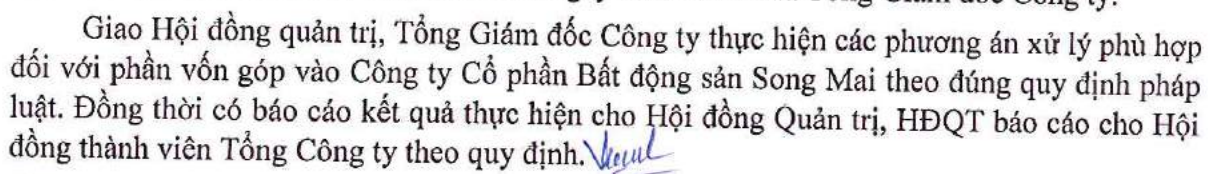 Giao Hội đồng quản trị, Tổng Giám đốc Công ty thực hiện các phương án xử lý phù hợp
đối với phần vốn góp vào Công ty Cổ phần Bất động sản Song Mai theo đúng quy định pháp
luật. Đồng thời có báo cáo kết quả thực hiện cho Hội đồng Quản trị, HĐQT báo cáo cho Hội
đồng thành viên Tổng Công ty theo quy định.